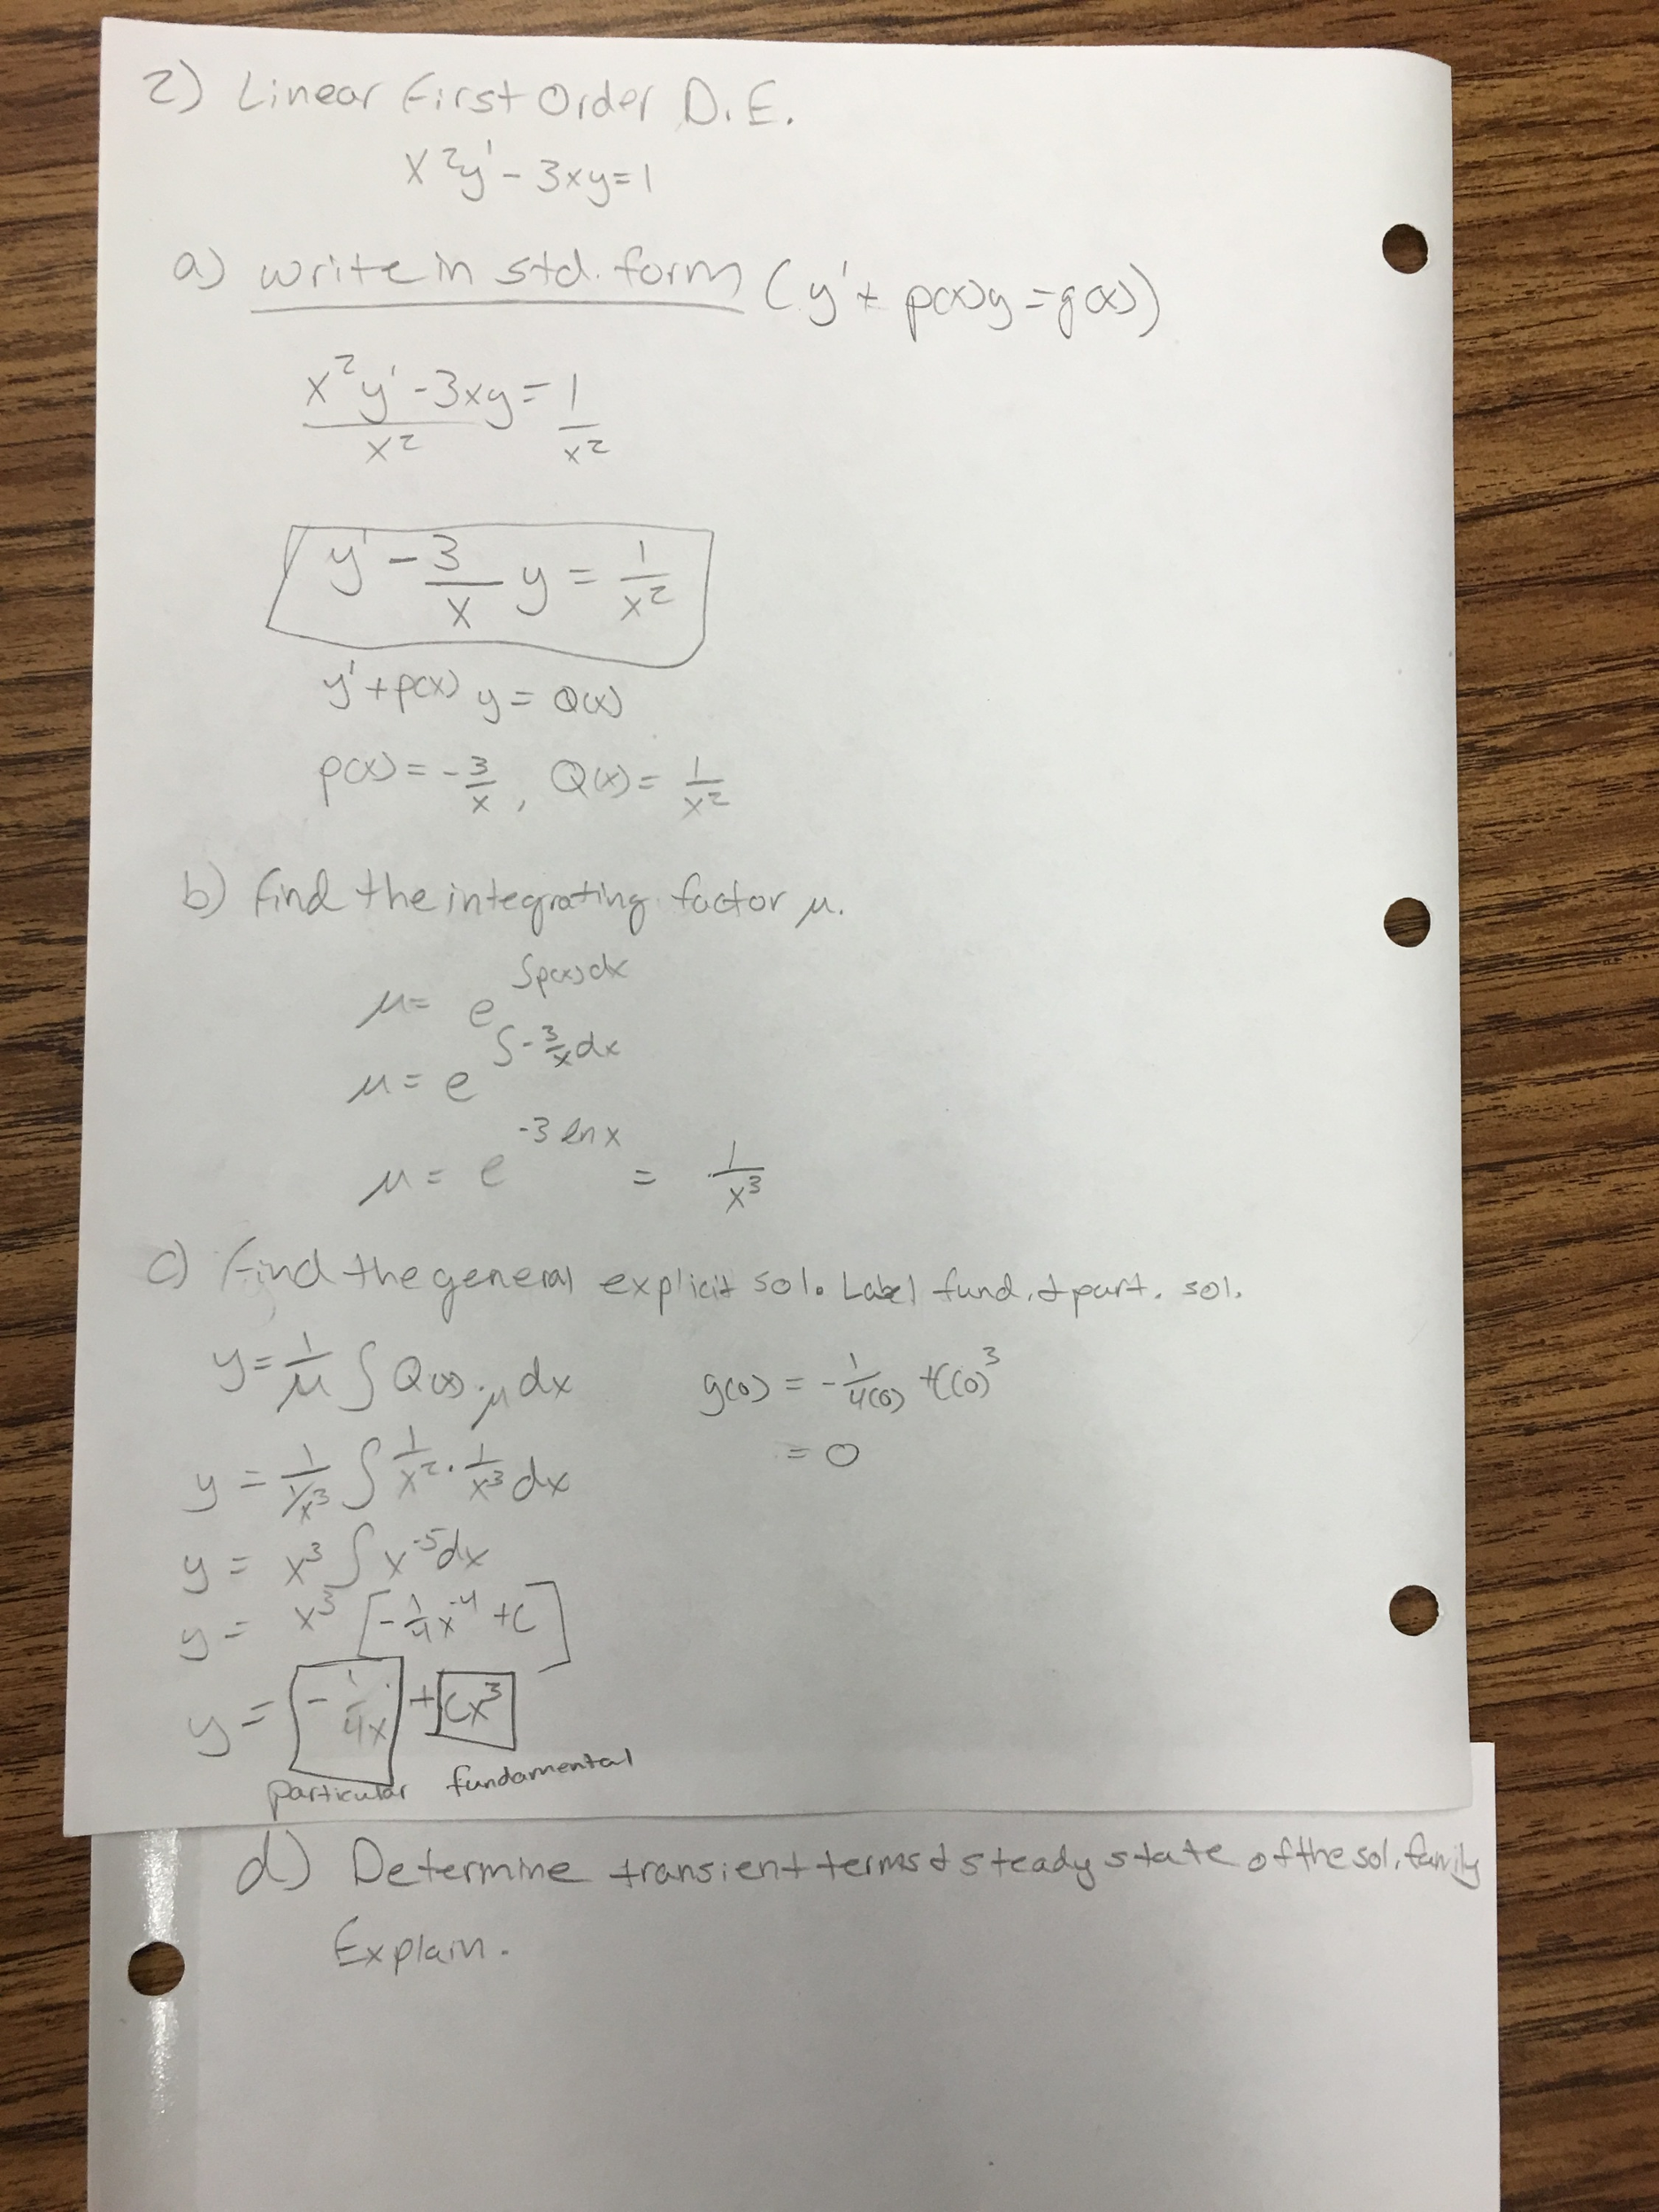 2) Linear First Order D.E.
x²y' - 3xy = 1
a) write in std. form (y' + p(x)y = g(x))
x²y' - 3xy / x² = 1 / x²
y' - 3/x y = 1/x²
y' + p(x) y = Q(x)
p(x) = - 3/x , Q(x) = 1/x²
b) find the integrating factor μ.
μ = e^∫p(x)dx
μ = e^∫-3/x dx
μ = e^-3 ln x = 1/x³
c) Find the general explicit sol. Label fund. & part. sol.
y = 1/μ ∫ Q(x) · μ dx
y = 1/(1/x³) ∫ 1/x² · 1/x³ dx
y = x³ ∫ x^-5 dx
y = x³ [- 1/4 x^-4 + C]
y = - 1/4x + Cx³
particular fundamental
g(0) = - 1/4(0) + C(0)³
= 0
d) Determine transient terms & steady state of the sol. family
Explain.